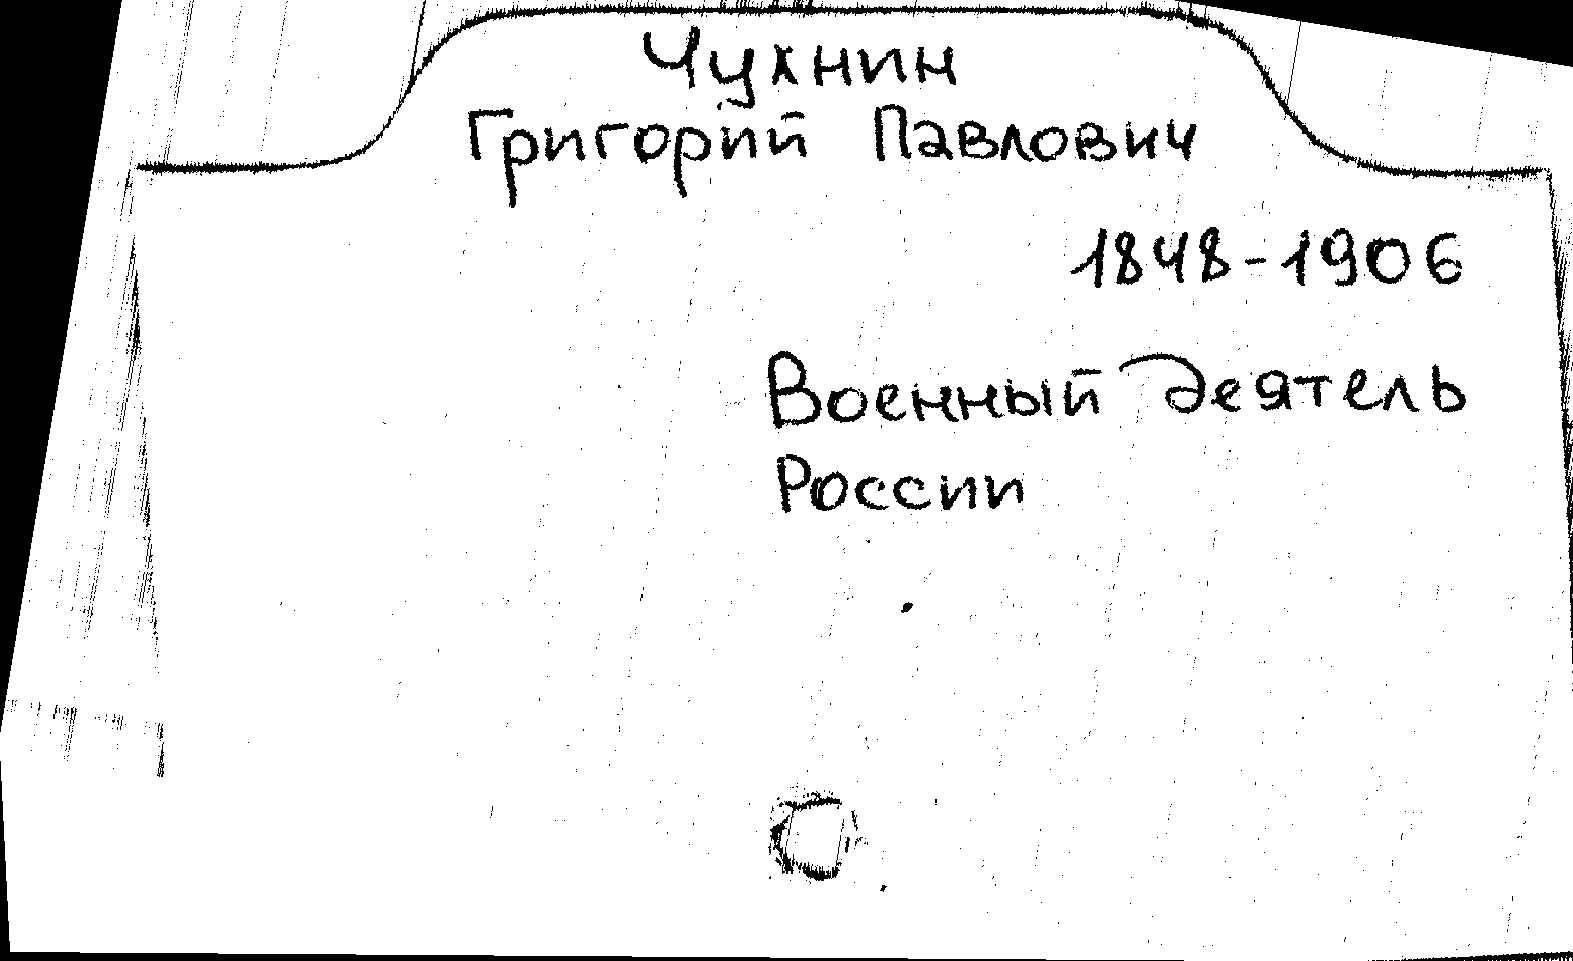 Чухнин
Григорий Павлович
1848-1906
Военный деятель
России